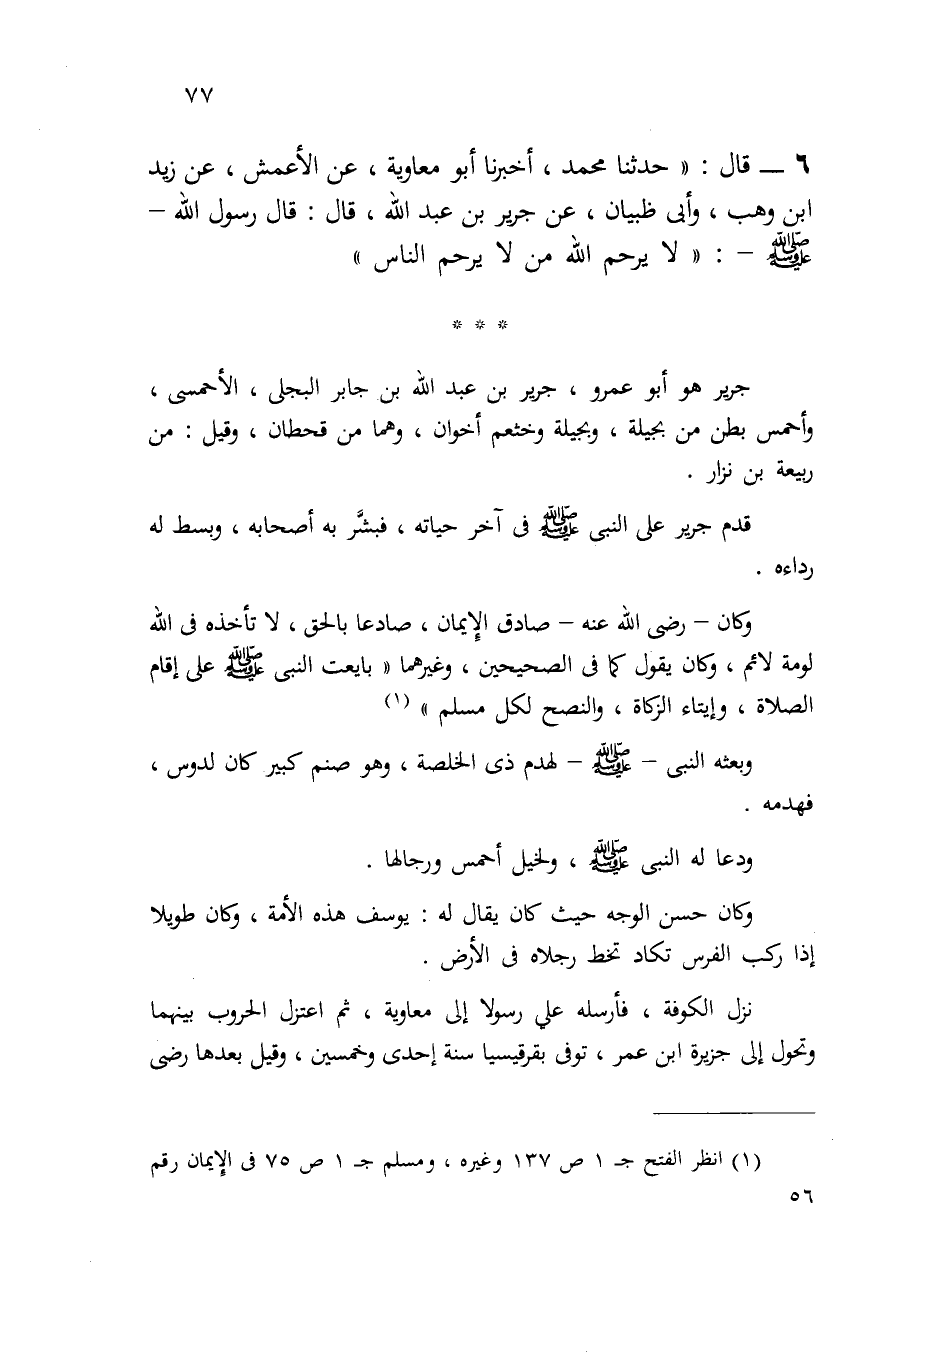 ٧٧
٦ ــ قال : « حدثنا محمد ، أخبرنا أبو معاوية ، عن الأعمش ، عن زيد
ابن وهب ، وأبى ظبيان ، عن جرير بن عبد الله ، قال : قال رسول الله –
ﷺ – : « لا يرحم الله من لا يرحم الناس »
* * *
جرير هو أبو عمرو ، جرير بن عبد الله بن جابر البجلى ، الأحمسى ،
وأحمس بطن من بجيلة ، وبجيلة وخثعم أخوان ، وهما من قحطان ، وقيل : من
ربيعة بن نزار .
قدم جرير على النبى ﷺ فى آخر حياته ، فبشَّر به أصحابه ، وبسط له
رداءه .
وكان – رضى الله عنه – صادق الإيمان ، صادعا بالحق ، لا تأخذه فى الله
لومة لائم ، وكان يقول كما فى الصحيحين ، وغيرهما « بايعت النبى ﷺ على إقام
الصلاة ، وإيتاء الزكاة ، والنصح لكل مسلم » (١)
وبعثه النبى – ﷺ – لهدم ذى الخلصة ، وهو صنم كبير كان لدوس ،
فهدمه .
ودعا له النبى ﷺ ، ولخيل أحمس ورجالها .
وكان حسن الوجه حيث كان يقال له : يوسف هذه الأمة ، وكان طويلا
إذا ركب الفرس تكاد تخط رجلاه فى الأرض .
نزل الكوفة ، فأرسله علي رسولا إلى معاوية ، ثم اعتزل الحروب بينهما
وتحول إلى جزيرة ابن عمر ، توفى بقرقيسيا سنة إحدى وخمسين ، وقيل بعدها رضى
(١) انظر الفتح جـ ١ ص ١٣٧ وغيره ، ومسلم جـ ١ ص ٧٥ فى الإيمان رقم
٥٦